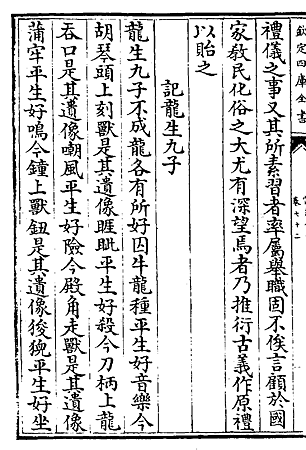 欽定四庫全書
卷七十二
禮儀之事又其所素習者率屬舉職固不俟言顧於國
家敎民化俗之大尤有深望焉者乃推衍古義作原禮
以貽之
記龍生九子
龍生九子不成龍各有所好囚牛龍種平生好音樂今
胡琴頭上刻獸是其遺像睚眦平生好殺今刀柄上龍
吞口是其遺像嘲風平生好險今殿角走獸是其遺像
蒲牢平生好鳴今鐘上獸鈕是其遺像狻猊平生好坐